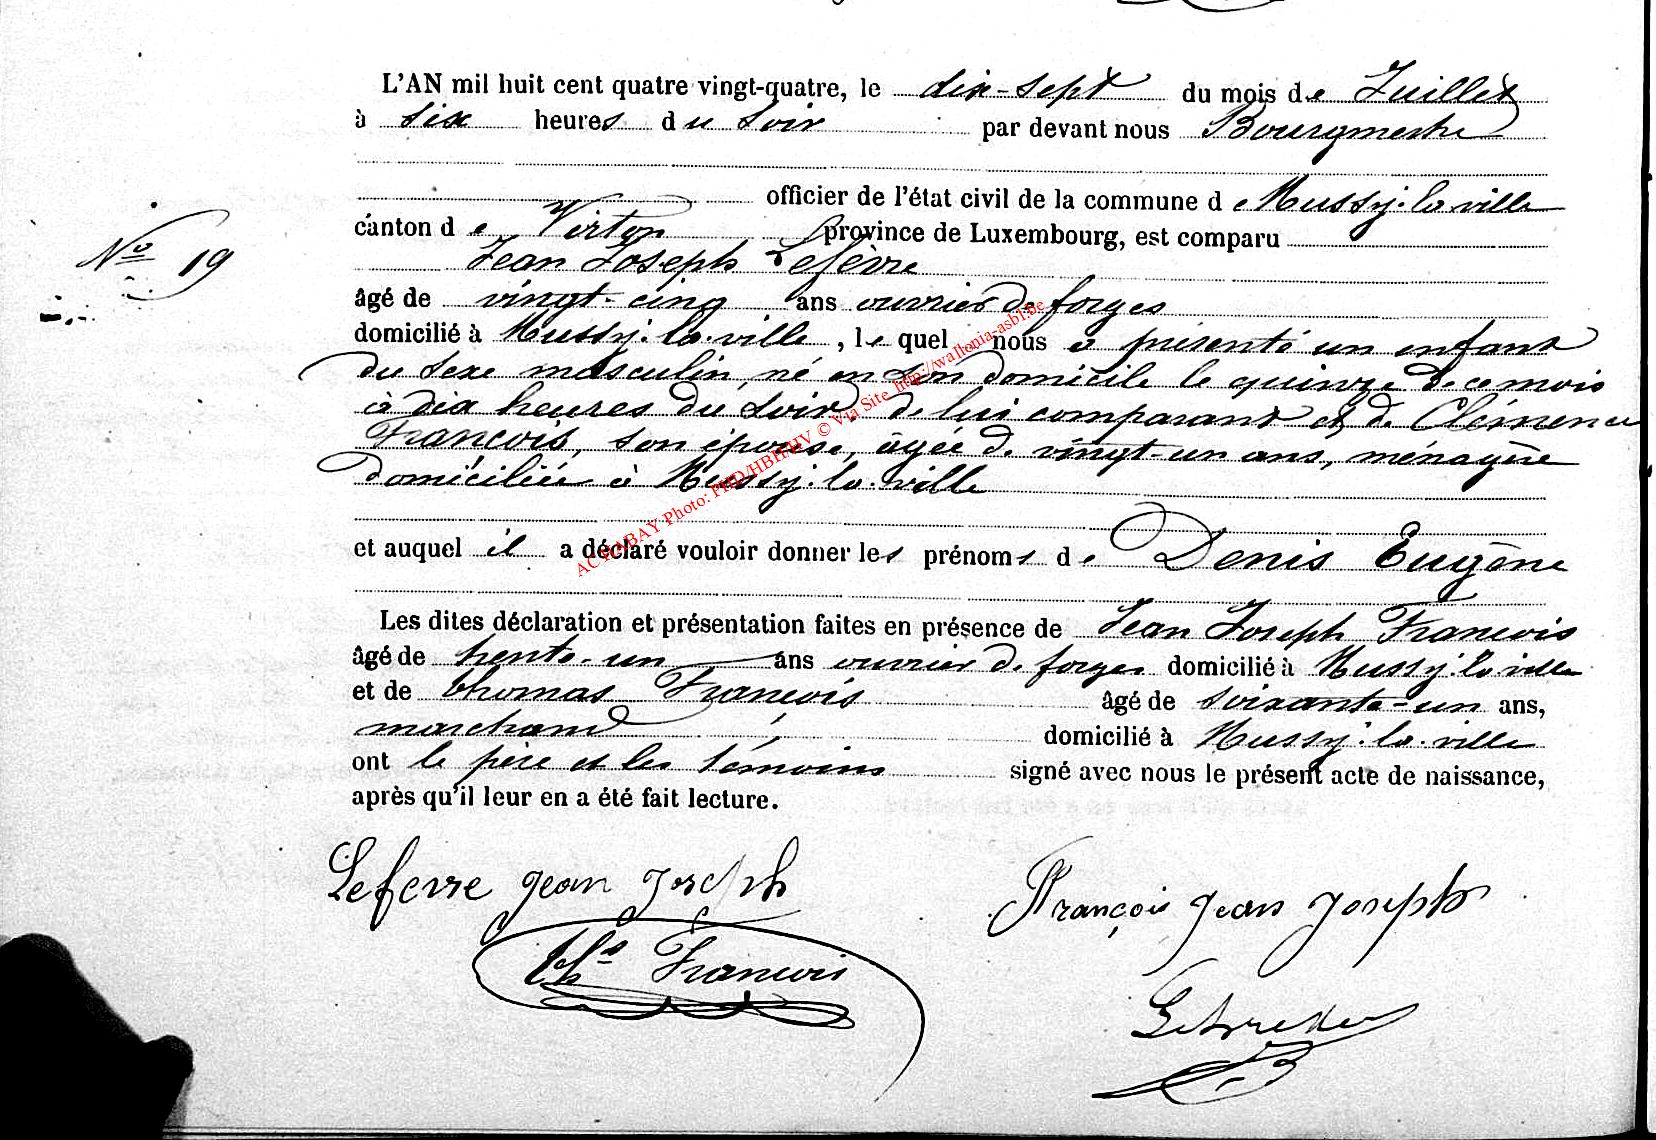 L'AN mil huit cent quatre vingt-quatre, le dix-sept du mois de Juillet
à six heures du soir par devant nous Bourgmestre
officier de l'état civil de la commune de Mussy-la-ville
canton de Virton province de Luxembourg, est comparu
Nº 19
Jean Joseph Lefèvre
âgé de vingt-cinq ans ouvrier de forges
domicilié à Mussy-la-ville, lequel nous a présenté un enfant
du sexe masculin, né en son domicile le quinze de ce mois
à dix heures du soir, de lui comparant et de Clémence
François, son épouse, âgée de vingt-un ans, ménagère
domiciliée à Mussy-la-ville
et auquel il a déclaré vouloir donner les prénoms de Denis Eugène
Les dites déclaration et présentation faites en présence de Jean Joseph François
âgé de trente-un ans ouvrier de forges domicilié à Mussy-la-ville
et de thomas François âgé de soixante-un ans,
marchand domicilié à Mussy-la-ville
ont le père et les témoins signé avec nous le présent acte de naissance,
après qu'il leur en a été fait lecture.
Lefevre Jean Joseph
François Jean Joseph
ths François
AC HABAY Photo: PHD/HBH/HV © Via Site http://wallonia-asbl.be